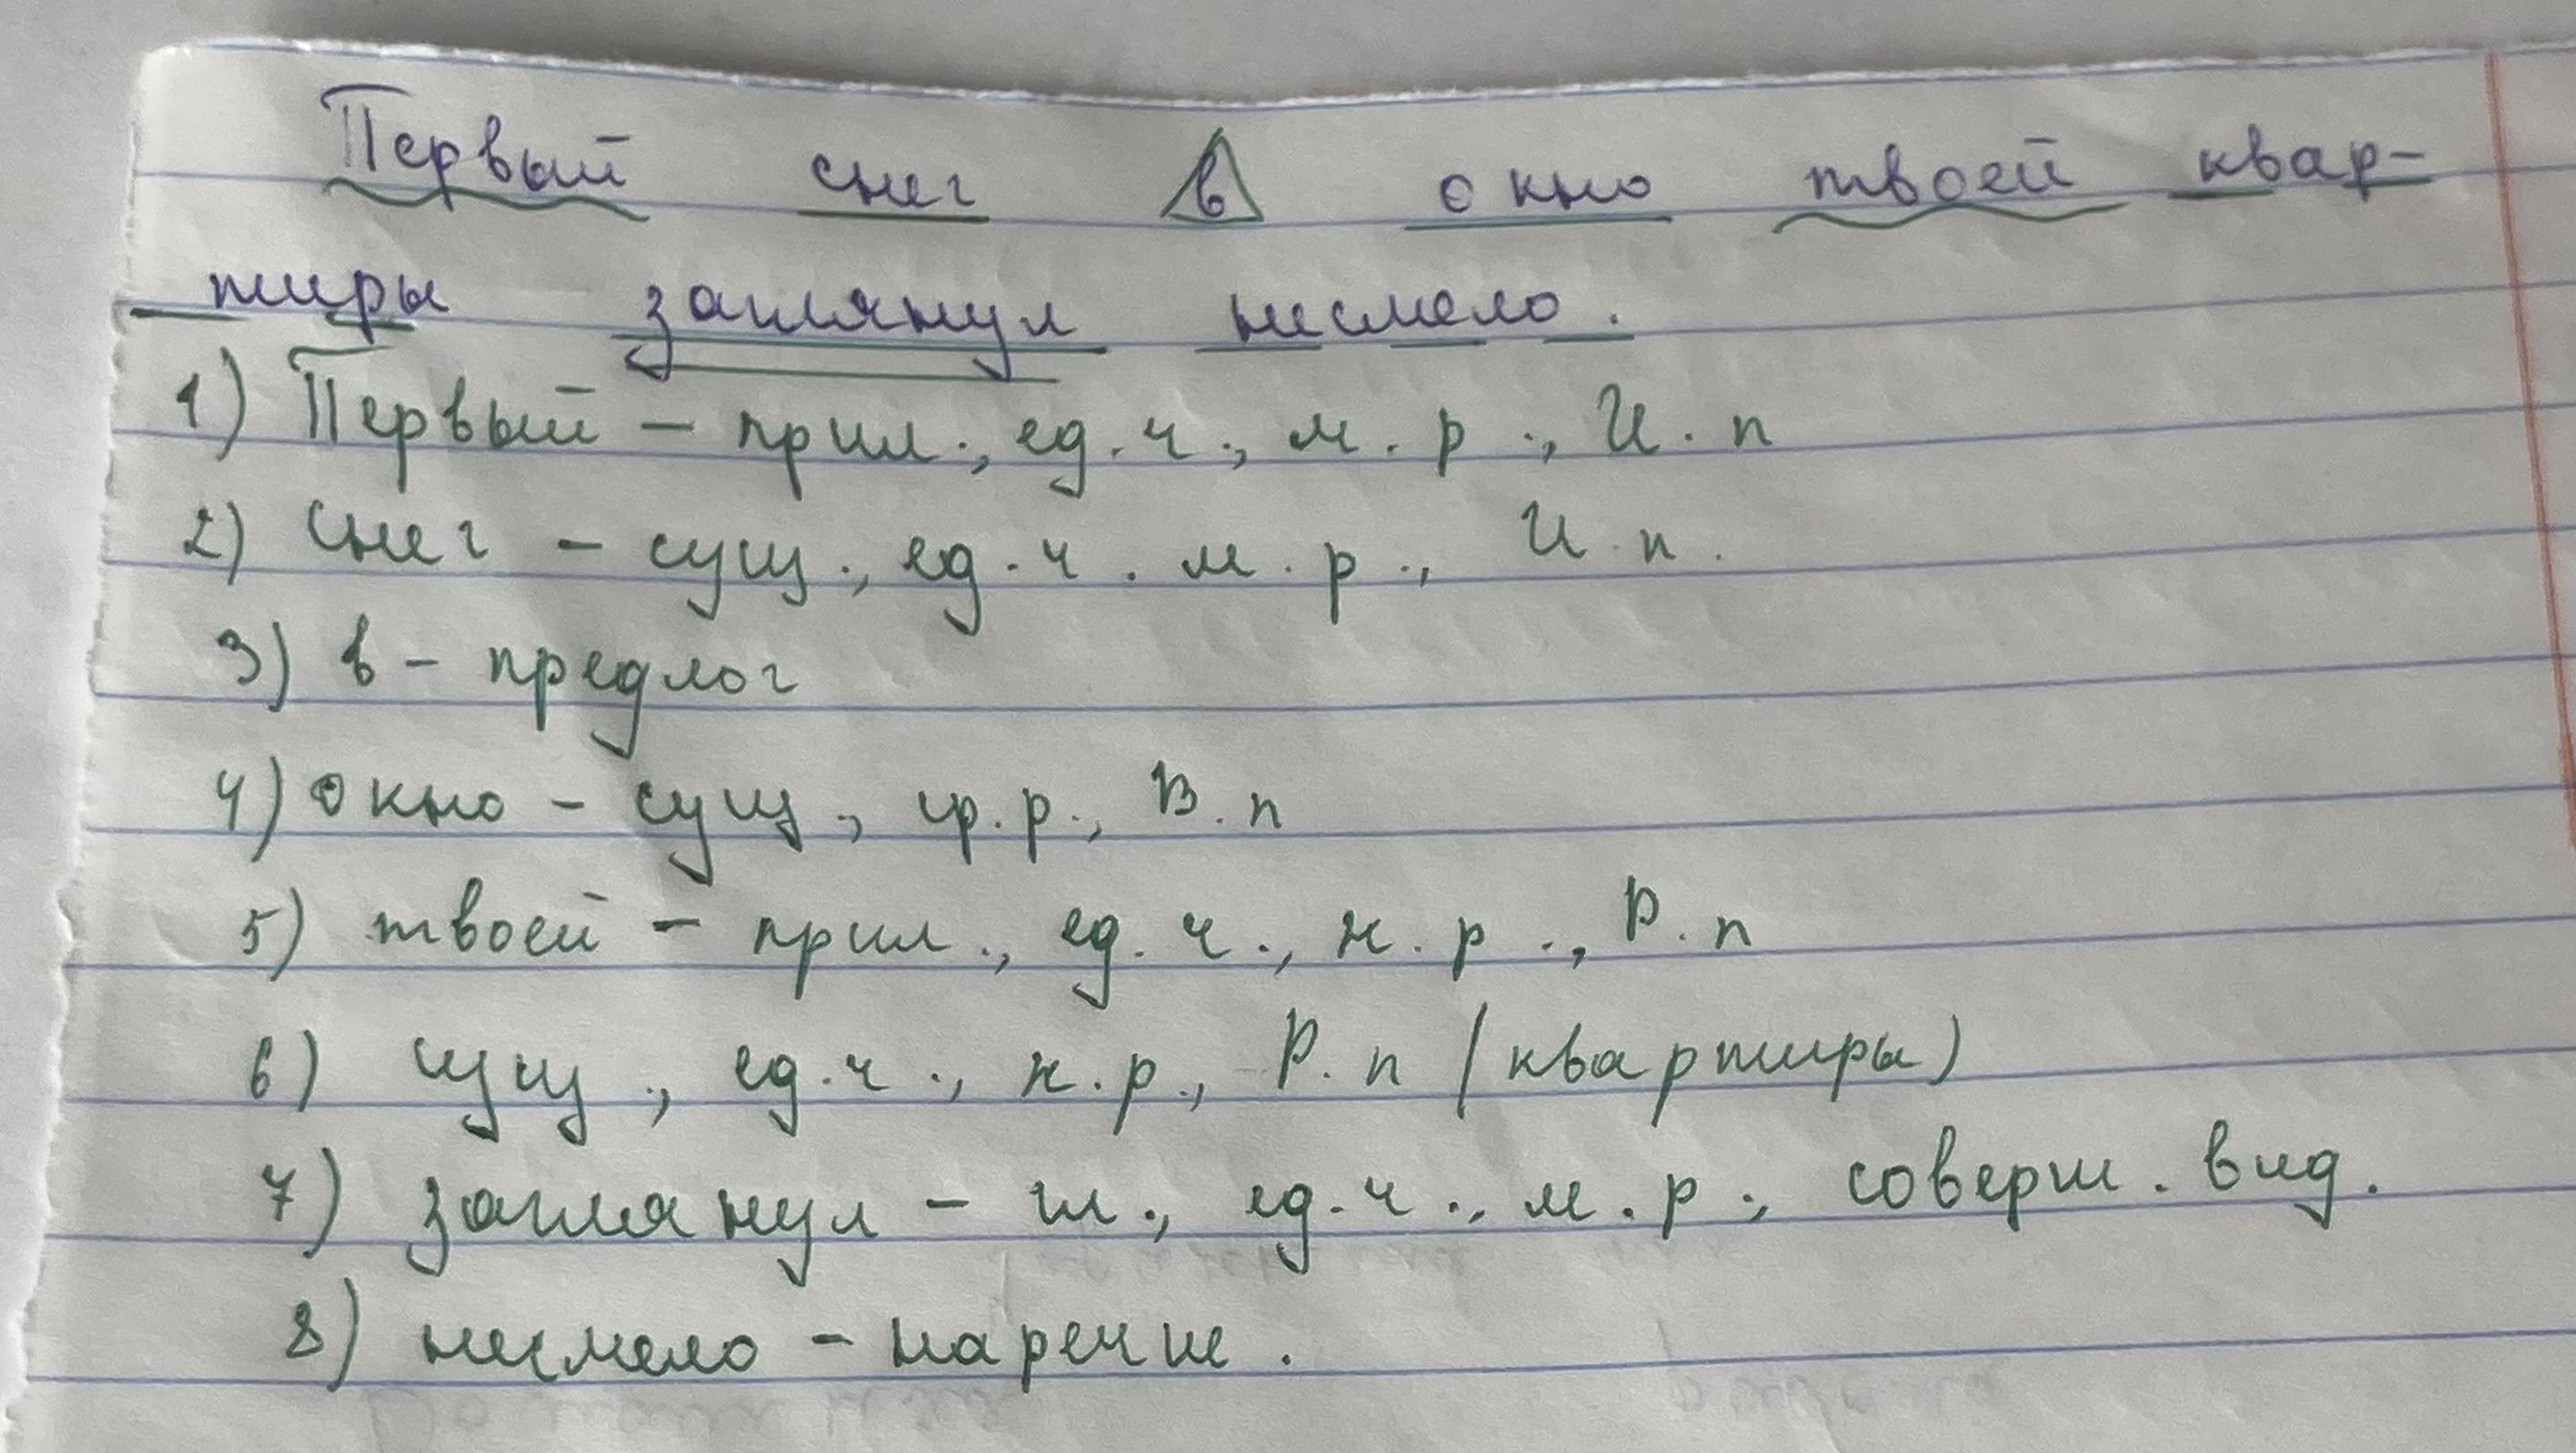 Первый снег в окно твоей квар-
тиры заглянул несмело.
1) Первый - прил., ед.ч., м.р., И.п
2) Снег - сущ., ед.ч. м.р., И.п.
3) в - предлог
4) окно - сущ., ср.р., В.п
5) твоей - прил., ед.ч., ж.р., Р.п
6) сущ., ед.ч., ж.р., Р.п (квартиры)
7) заглянул - гл., ед.ч., м.р., соверш. вид.
8) несмело - наречие.